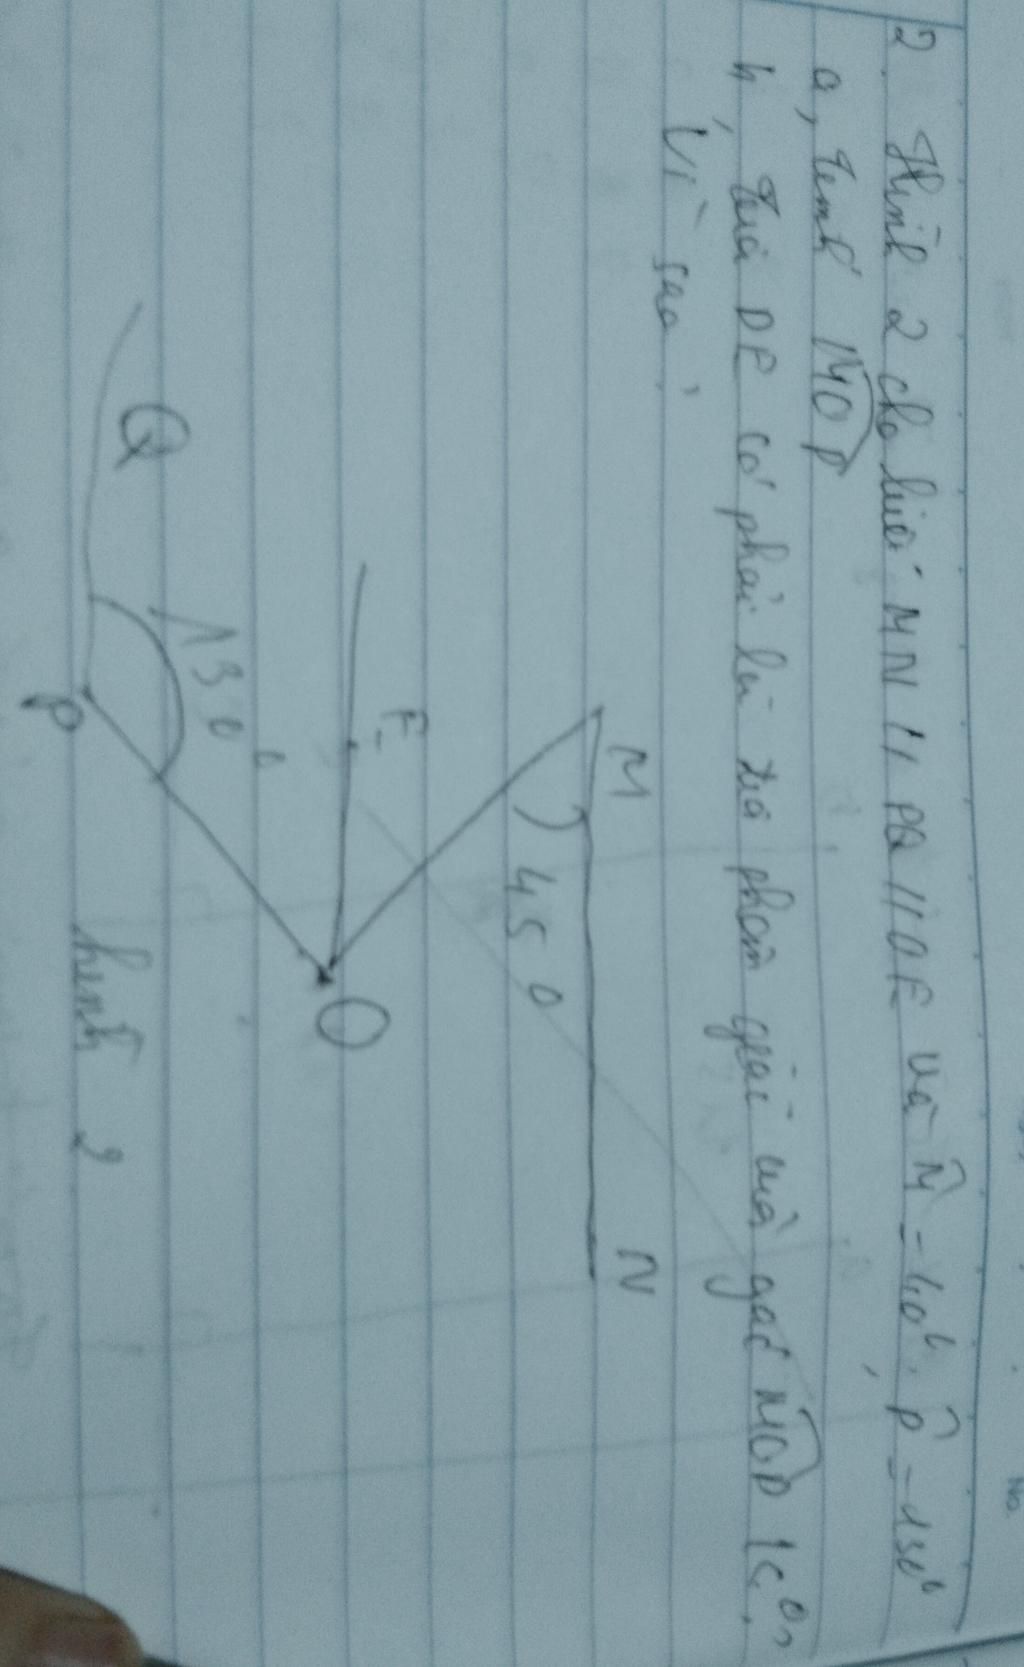 2 Hình 2 cho biết MN // PQ // OE và M̂ = 40°, P̂ = 130°
a, tính MOP
b, tia OE có phải là tia phân giác của góc MOP k°,
Vì sao
M
N
45 0
E
O
130
Q
P
hình 2
No.